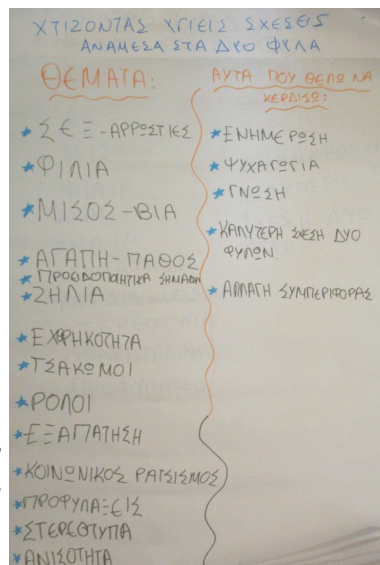 ΧΤΙΖΟΝΤΑΣ ΥΓΙΕΙΣ ΣΧΕΣΕΙΣ
ΑΝΑΜΕΣΑ ΣΤΑ ΔΥΟ ΦΥΛΑ
ΘΕΜΑΤΑ:
* ΣΕΞ - ΑΡΡΩΣΤΙΕΣ
* ΦΙΛΙΑ
* ΜΙΣΟΣ - ΒΙΑ
* ΑΓΑΠΗ - ΠΑΘΟΣ
* ΠΡΟΕΙΔΟΠΟΙΗΤΙΚΑ ΣΗΜΑΔΙΑ
* ΖΗΛΙΑ
* ΕΧΘΡΗΚΟΤΗΤΑ
* ΤΣΑΚΩΜΟΙ
* ΡΟΛΟΙ
* ΕΞΑΠΑΤΗΣΗ
* ΚΟΙΝΩΝΙΚΟΣ ΡΑΤΣΙΣΜΟΣ
* ΠΡΟΦΥΛΑΞΕΙΣ
* ΣΤΕΡΕΟΤΥΠΑ
* ΑΝΙΣΟΤΗΤΑ
ΑΥΤΑ ΠΟΥ ΘΕΛΩ ΝΑ
ΚΕΡΔΙΣΩ:
* ΕΝΗΜΕΡΩΣΗ
* ΨΥΧΑΓΩΓΙΑ
* ΓΝΩΣΗ
* ΚΑΛΥΤΕΡΗ ΣΧΕΣΗ ΔΥΟ
ΦΥΛΩΝ
* ΑΛΛΑΓΗ ΣΥΜΠΕΡΙΦΟΡΑΣ